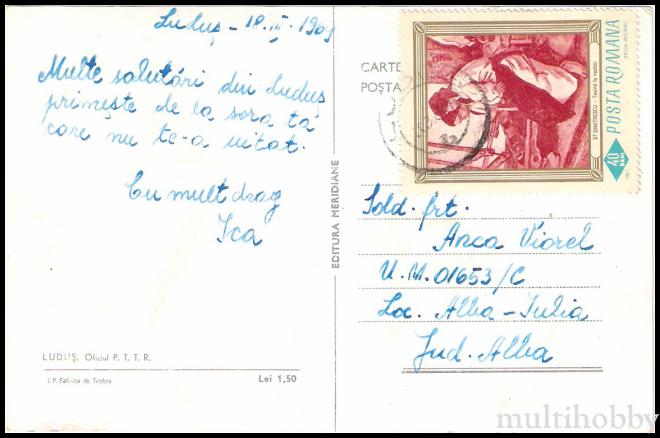 Luduș - 18.III.1969
Multe salutări din Luduș
primește de la sora ta
care nu te-a uitat.
Cu mult drag
Ica
LUDUȘ. Oficiul P. T. T. R.
I. P. Fabrica de Timbre
Lei 1,50
EDITURA MERIDIANE
CARTE
POȘTA
ST. DIMITRESCU - Țesînd la război
POSTA ROMANA
40
BANI
Sold. frt.
Anca Viorel
U.M. 01653/C
Loc. Alba-Iulia
Jud. Alba
multihobby